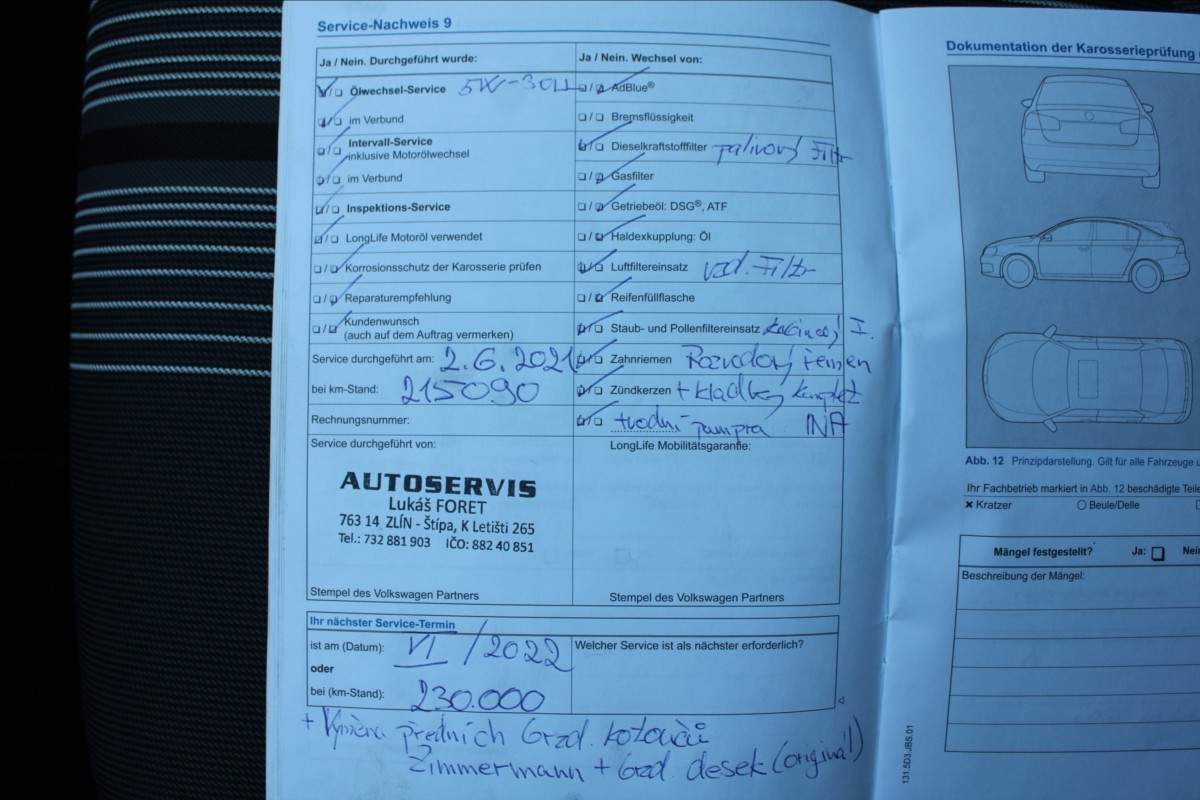 Service-Nachweis 9
Ja / Nein. Durchgeführt wurde:
Ölwechsel-Service 5W-30LL
im Verbund
Intervall-Service
inklusive Motorölwechsel
im Verbund
Inspektions-Service
LongLife Motoröl verwendet
Korrosionsschutz der Karosserie prüfen
Reparaturempfehlung
Kundenwunsch
(auch auf dem Auftrag vermerken)
Service durchgeführt am: 2.6.2021
bei km-Stand: 215090
Rechnungsnummer:
Service durchgeführt von:
AUTOSERVIS
Lukáš FORET
763 14 ZLÍN - Štípa, K Letišti 265
Tel.: 732 881 903 IČO: 882 40 851
Stempel des Volkswagen Partners
Ja / Nein. Wechsel von:
AdBlue®
Bremsflüssigkeit
Dieselkraftstofffilter palivový Filtr
Gasfilter
Getriebeöl: DSG®, ATF
Haldexkupplung: Öl
Luftfiltereinsatz vzd. Filtr
Reifenfüllflasche
Staub- und Pollenfiltereinsatz
Zahnriemen Rozvodový řemen
Zündkerzen + kladky komplet
+vodní pumpa INA
LongLife Mobilitätsgarantie:
Stempel des Volkswagen Partners
Ihr nächster Service-Termin
ist am (Datum): VI/2022
oder
bei (km-Stand): 230.000
Welcher Service ist als nächster erforderlich?
+ Výměna předních brzd. kotoučů
Zimmermann + brzd. desek (originál)
Dokumentation der Karosserieprüfung
Abb. 12 Prinzipdarstellung. Gilt für alle Fahrzeuge
Ihr Fachbetrieb markiert in Abb. 12 beschädigte Teile
Kratzer Beule/Delle
Mängel festgestellt? Ja:
Beschreibung der Mängel:
131.5D3.JBS.01